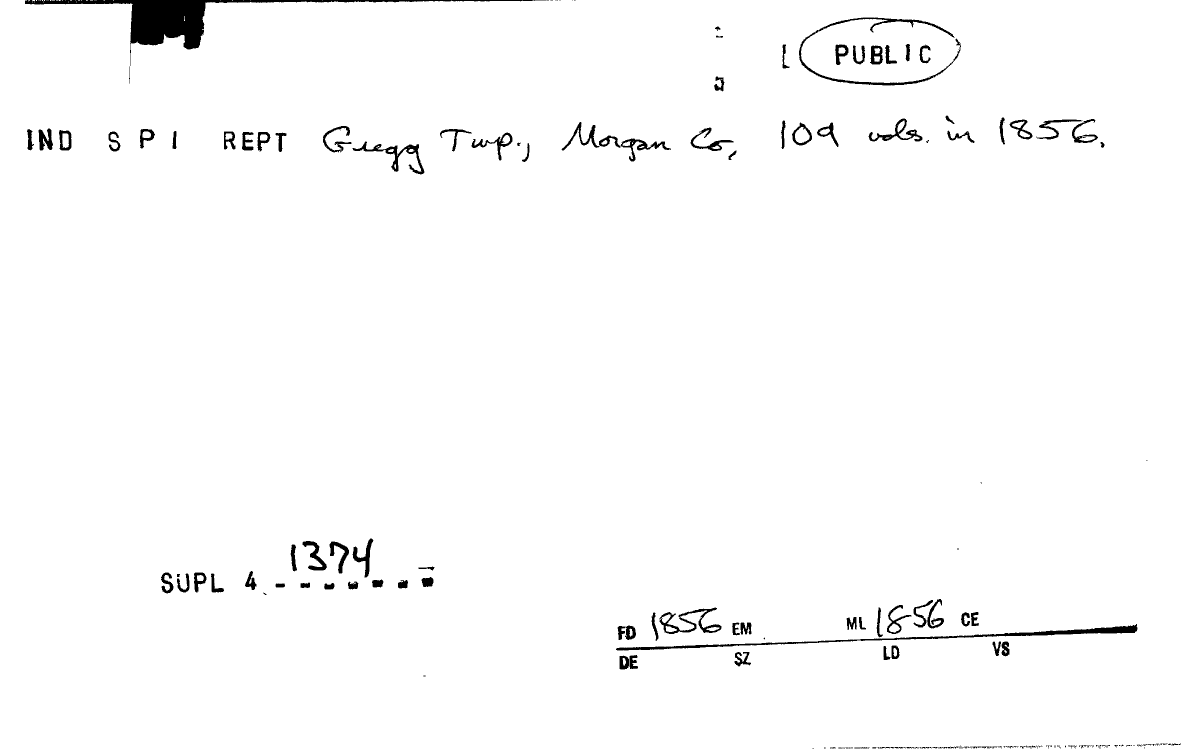 PUBLIC
IND S P I REPT Gregg Twp., Morgan Co, 109 vols. in 1856.
1374
SUPL 4
FD 1856 EM ML 1856 CE
DE SZ LD VS